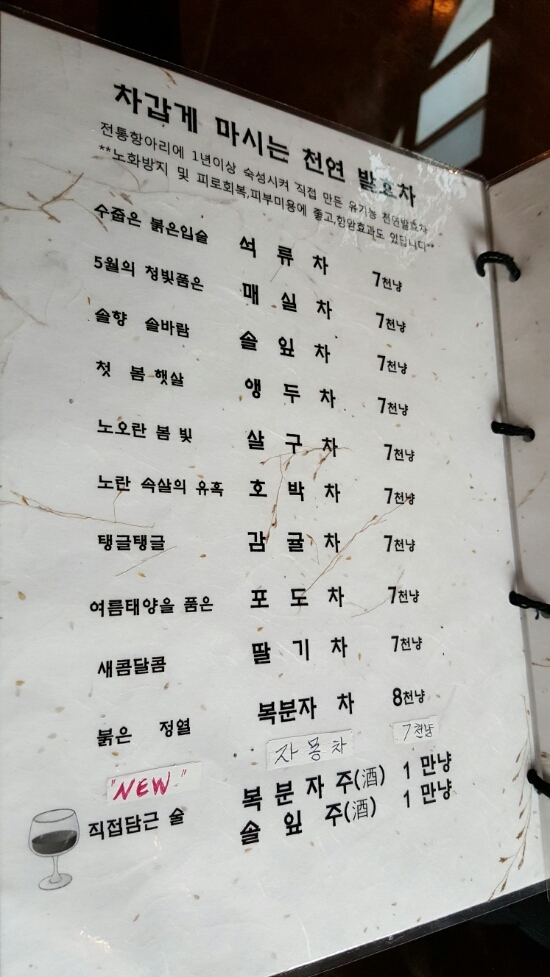 차갑게 마시는 천연 발효차
전통항아리에 1년이상 숙성시켜 직접 만든 유기농 천연발효차
**노화방지 및 피로회복,피부미용에 좋고,항암효과도 있답니다**
수줍은 붉은입술 석류차 7천냥
5월의 청빛품은 매실차 7천냥
솔향 솔바람 솔잎차 7천냥
첫 봄 햇살 앵두차 7천냥
노오란 봄 빛 살구차 7천냥
노란 속살의 유혹 호박차 7천냥
탱글탱글 감귤차 7천냥
여름태양을 품은 포도차 7천냥
새콤달콤 딸기차 7천냥
붉은 정열 복분자 차 8천냥
"NEW" 자몽차 7천냥
직접담근 술 복분자주(酒) 1만냥
솔잎주(酒) 1만냥